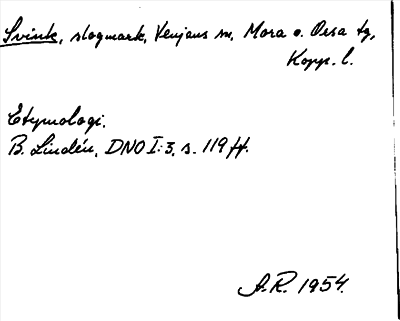 Svink, skogmark, Venjans sn, Mora o. Orsa tg,
Kopp. l.
Etymologi.
B. Lindén, DNO I:3, s. 119 ff.
A.R. 1954.